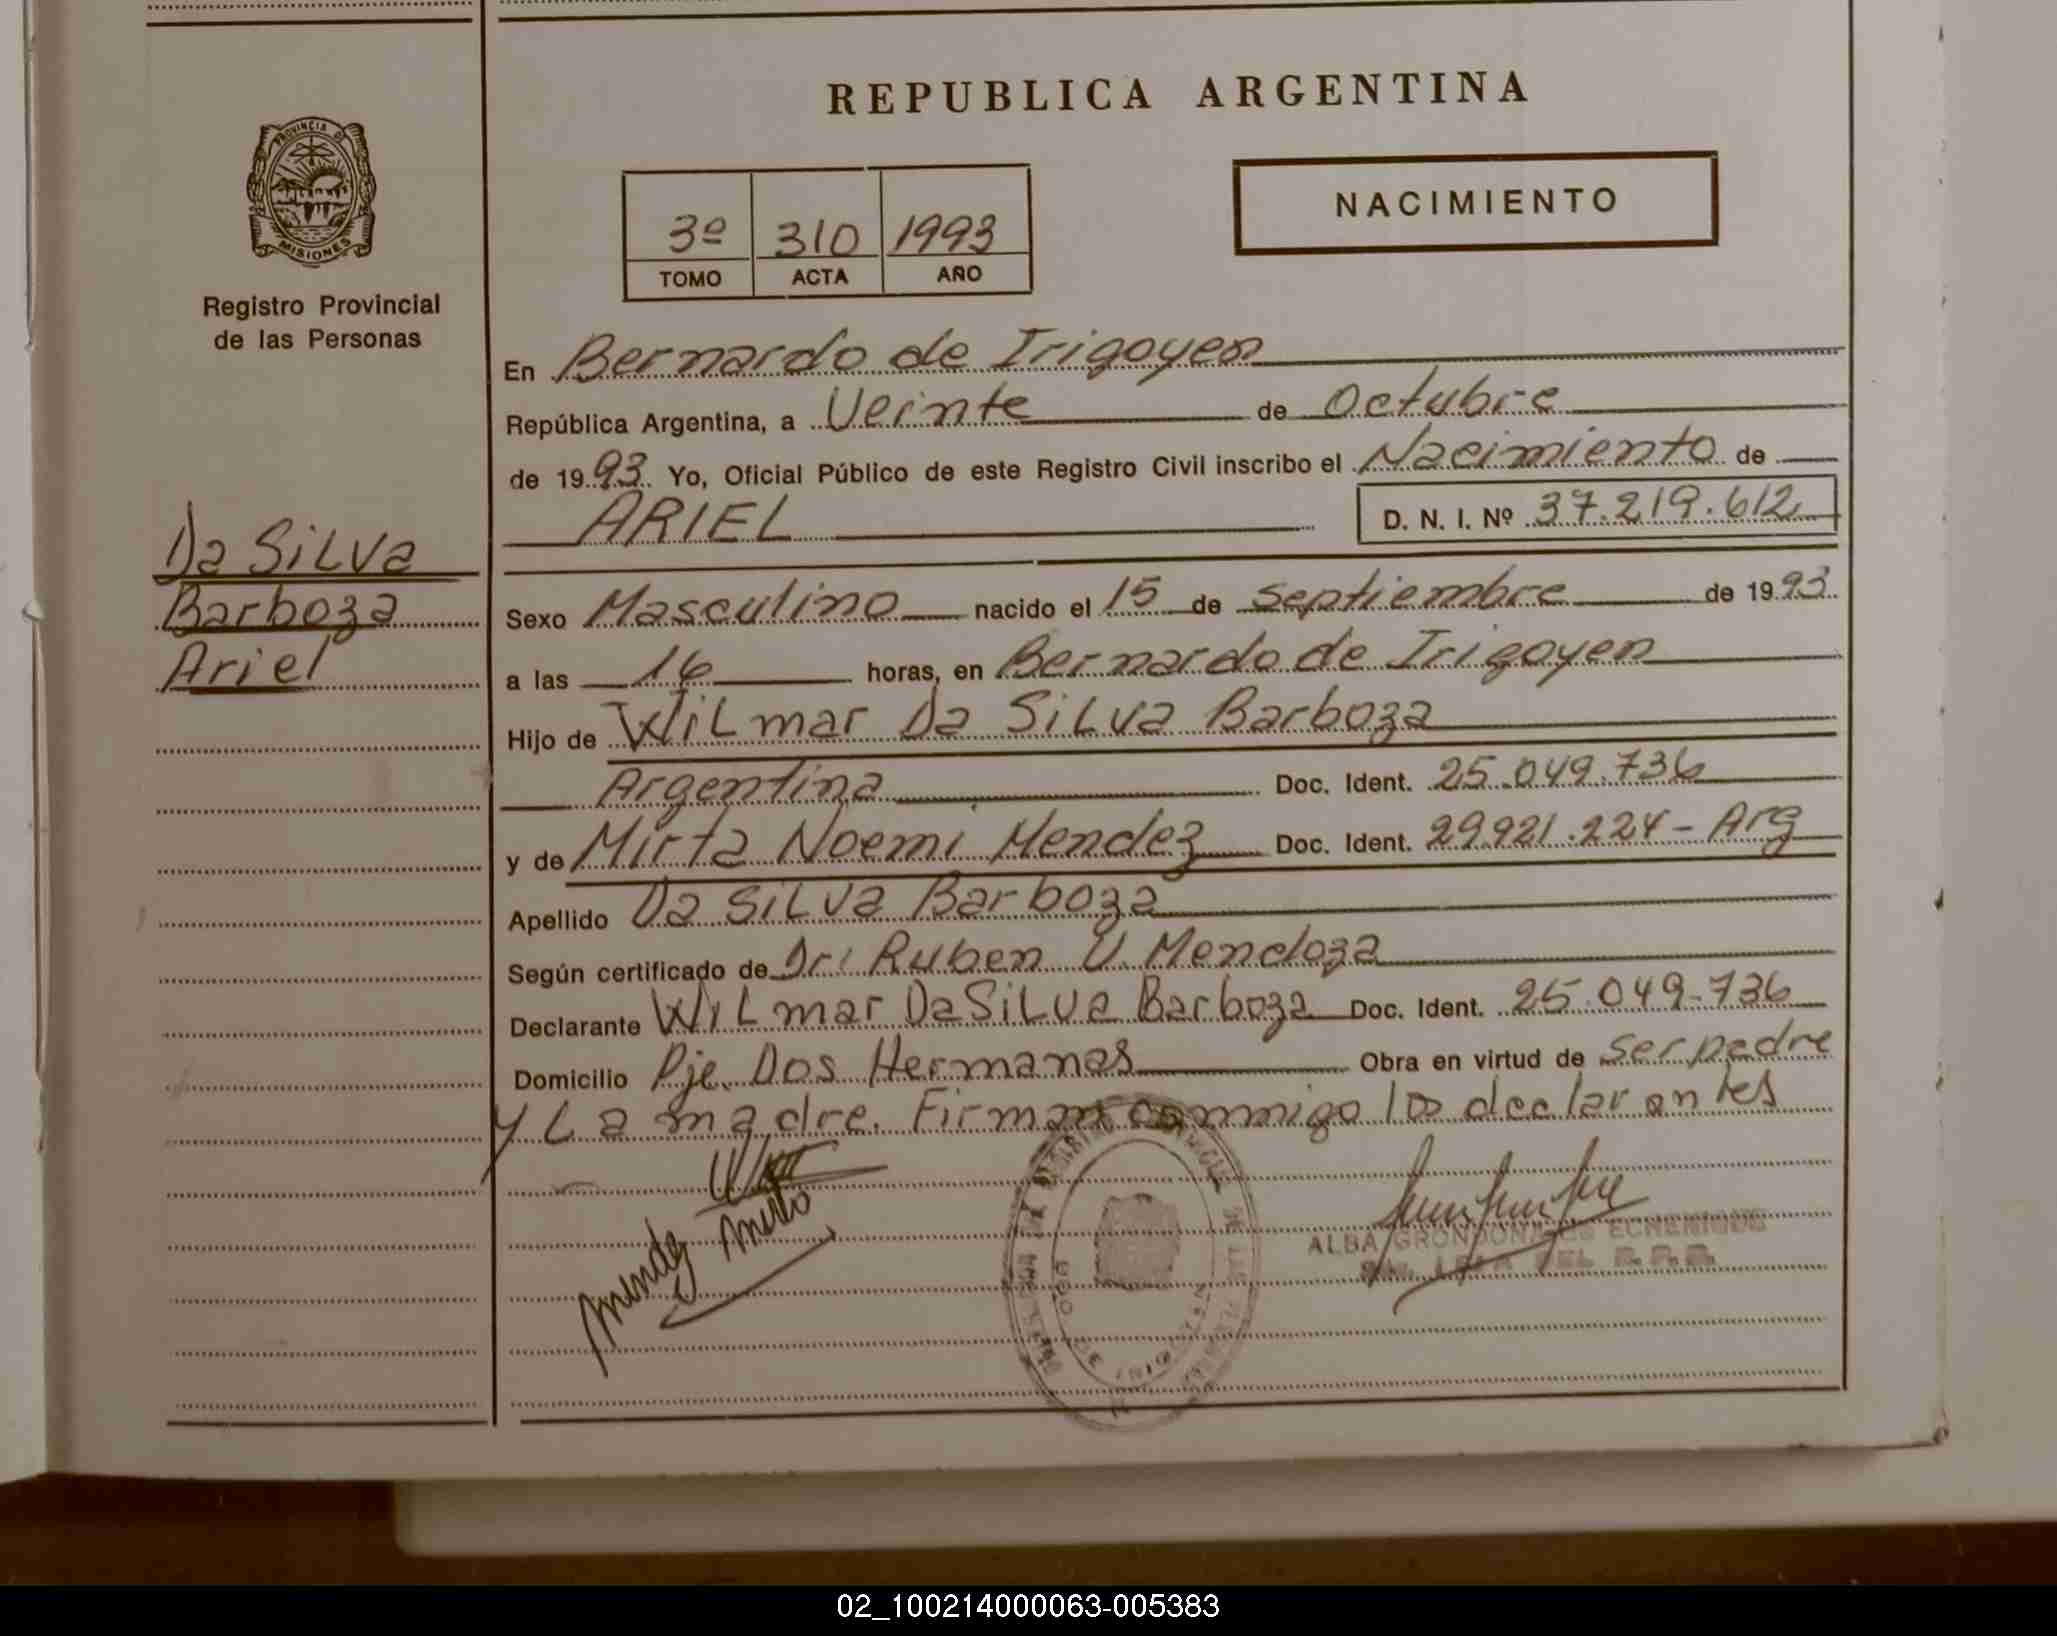 REPUBLICA ARGENTINA
PROVINCIA DE
MISIONES
Registro Provincial
de las Personas
NACIMIENTO
3º 310 1993
TOMO ACTA AÑO
Da Silva
Barboza
Ariel
En Bernardo de Irigoyen
República Argentina, a Veinte de Octubre
de 1993 Yo, Oficial Público de este Registro Civil inscribo el Nacimiento de
ARIEL D. N. I. Nº 37.219.612
Sexo Masculino nacido el 15 de Septiembre de 1993
a las 16 horas, en Bernardo de Irigoyen
Hijo de Wilmar Da Silva Barboza
Argentina Doc. Ident. 25.049.736
y de Mirta Noemi Mendez Doc. Ident. 29.921.224 - Arg
Apellido Da Silva Barboza
Según certificado de Dr: Ruben U. Mendoza
Declarante Wilmar Da Silva Barboza Doc. Ident. 25.049.736
Domicilio Pje. Dos Hermanas Obra en virtud de ser padre
y La madre. Firman conmigo los declarantes
Mendez Mirta
ALBA GRONDONA DE ECHENIQUE
02_100214000063-005383